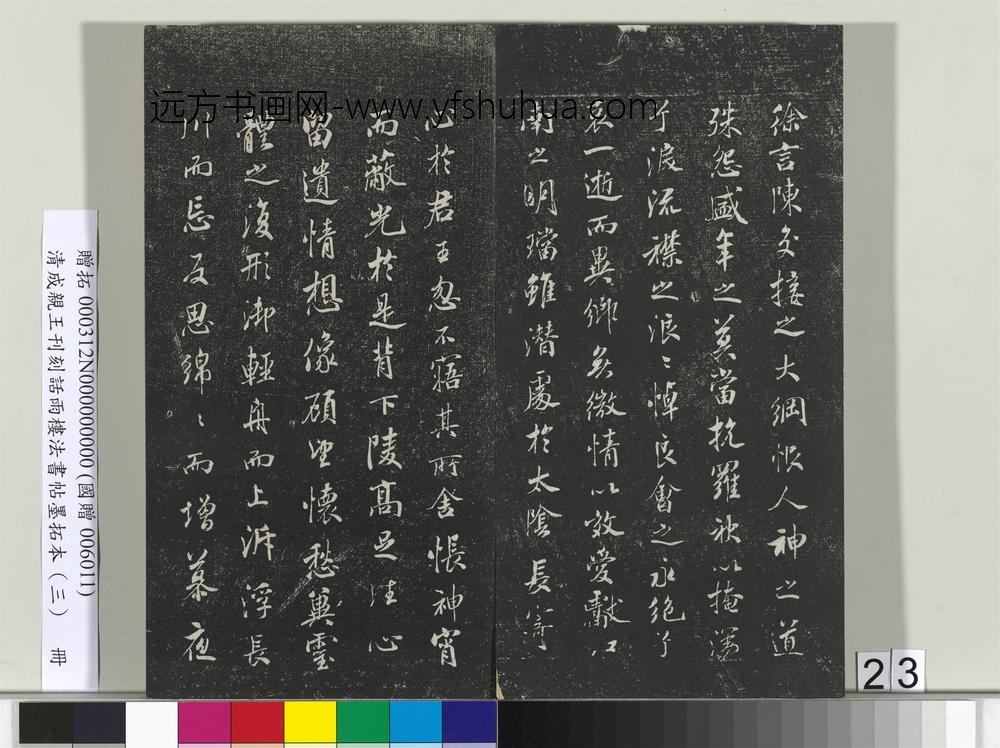 远方书画网-www.yfshuhua.com
徐言陳交接之大綱恨人神之道
殊怨盛年之莫當抗羅袂以掩涕
兮淚流襟之浪〻悼良會之永絕兮
哀一逝而異鄉無微情以效愛獻江
南之明璫雖潛處於太陰長寄
心於君王忽不寤其所舍悵神宵
而蔽光於是背下陵高足往心
留遺情想像顧望懷愁冀靈
體之復形御輕舟而上泝浮長
川而忘反思綿〻而增慕夜
贈拓 000312N000000000 (國贈 006011)
清成親王刊刻話雨樓法書帖墨拓本 (三) 冊
23